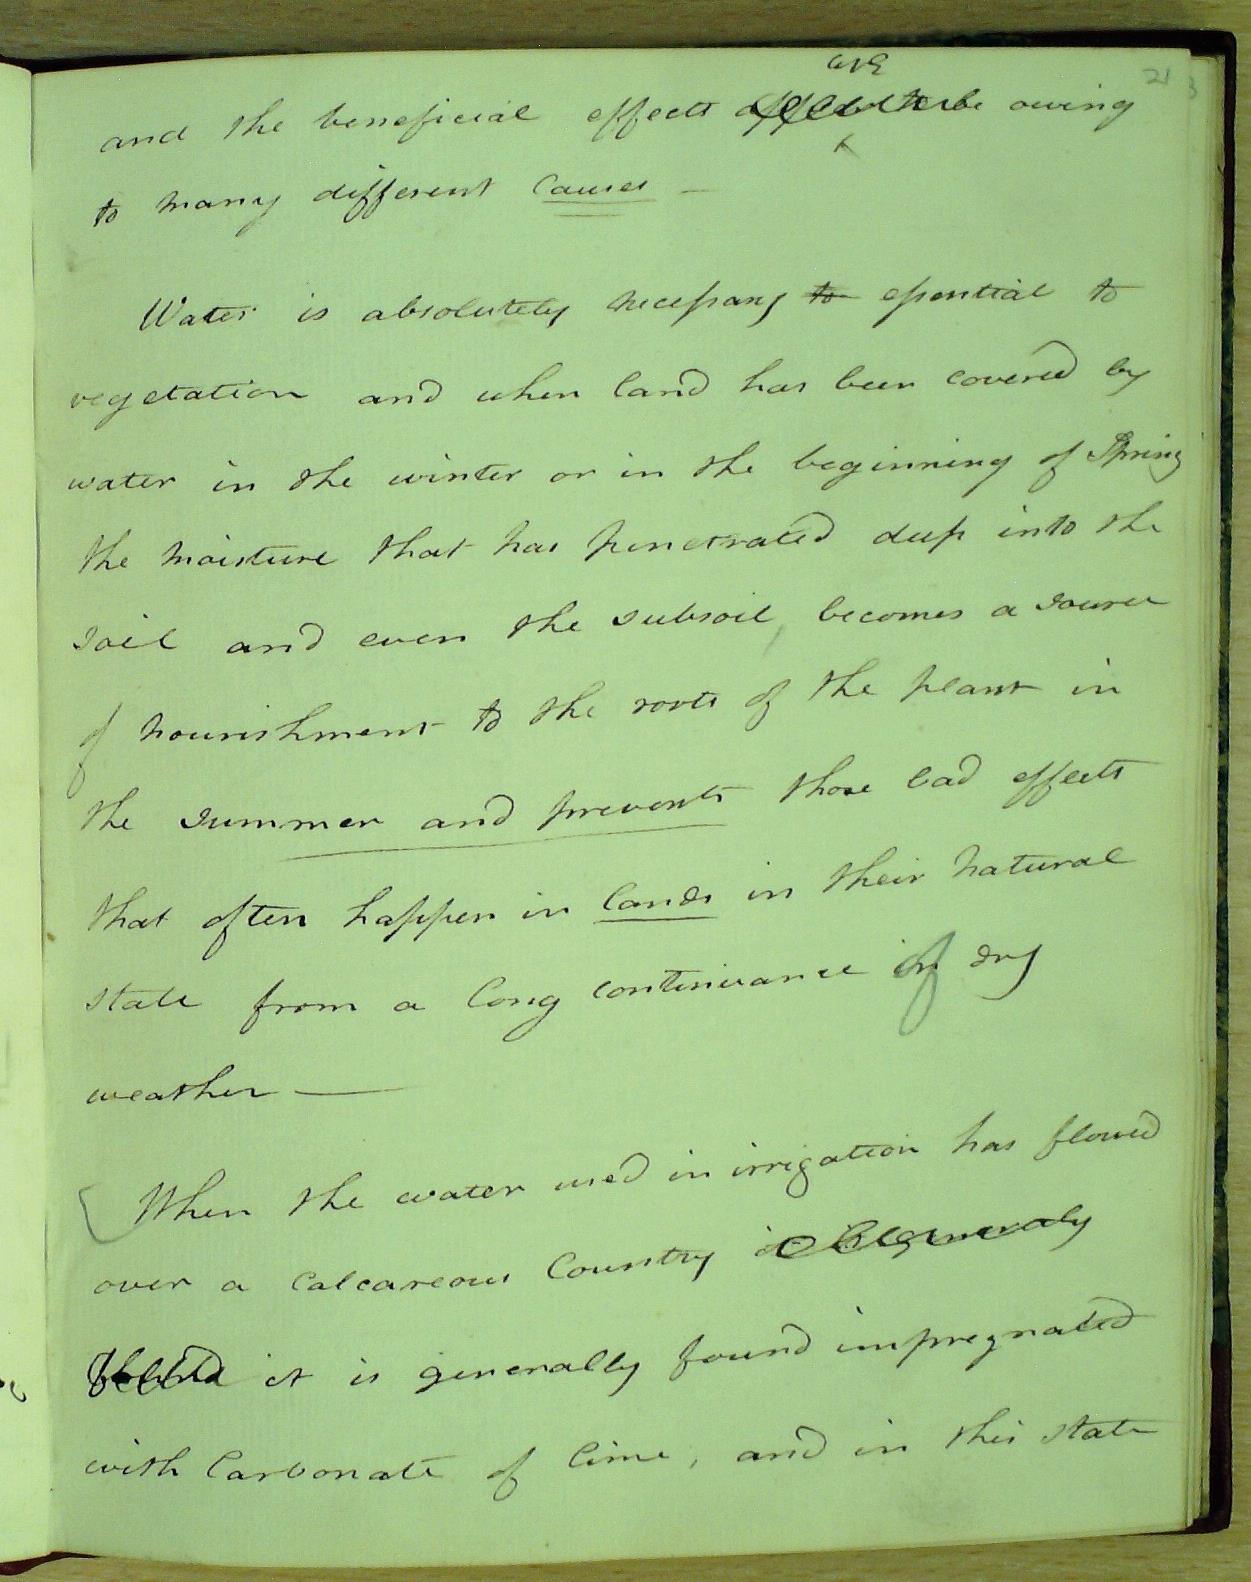 21
are
and the beneficial effects appear to be owing
to many different Causes -
Water is absolutely necessary to essential to
vegetation and when land has been covered by
water in the winter or in the beginning of Spring
the moisture that has penetrated deep into the
soil and even the subsoil becomes a source
of nourishment to the roots of the plant in
the summer and prevents those bad effects
that often happen in lands in their natural
state from a long continuance of dry
weather —
When the water used in irrigation has flowed
over a Calcareous Country is generaly
found it is generally found impregnated
with Carbonate of lime, and in this state